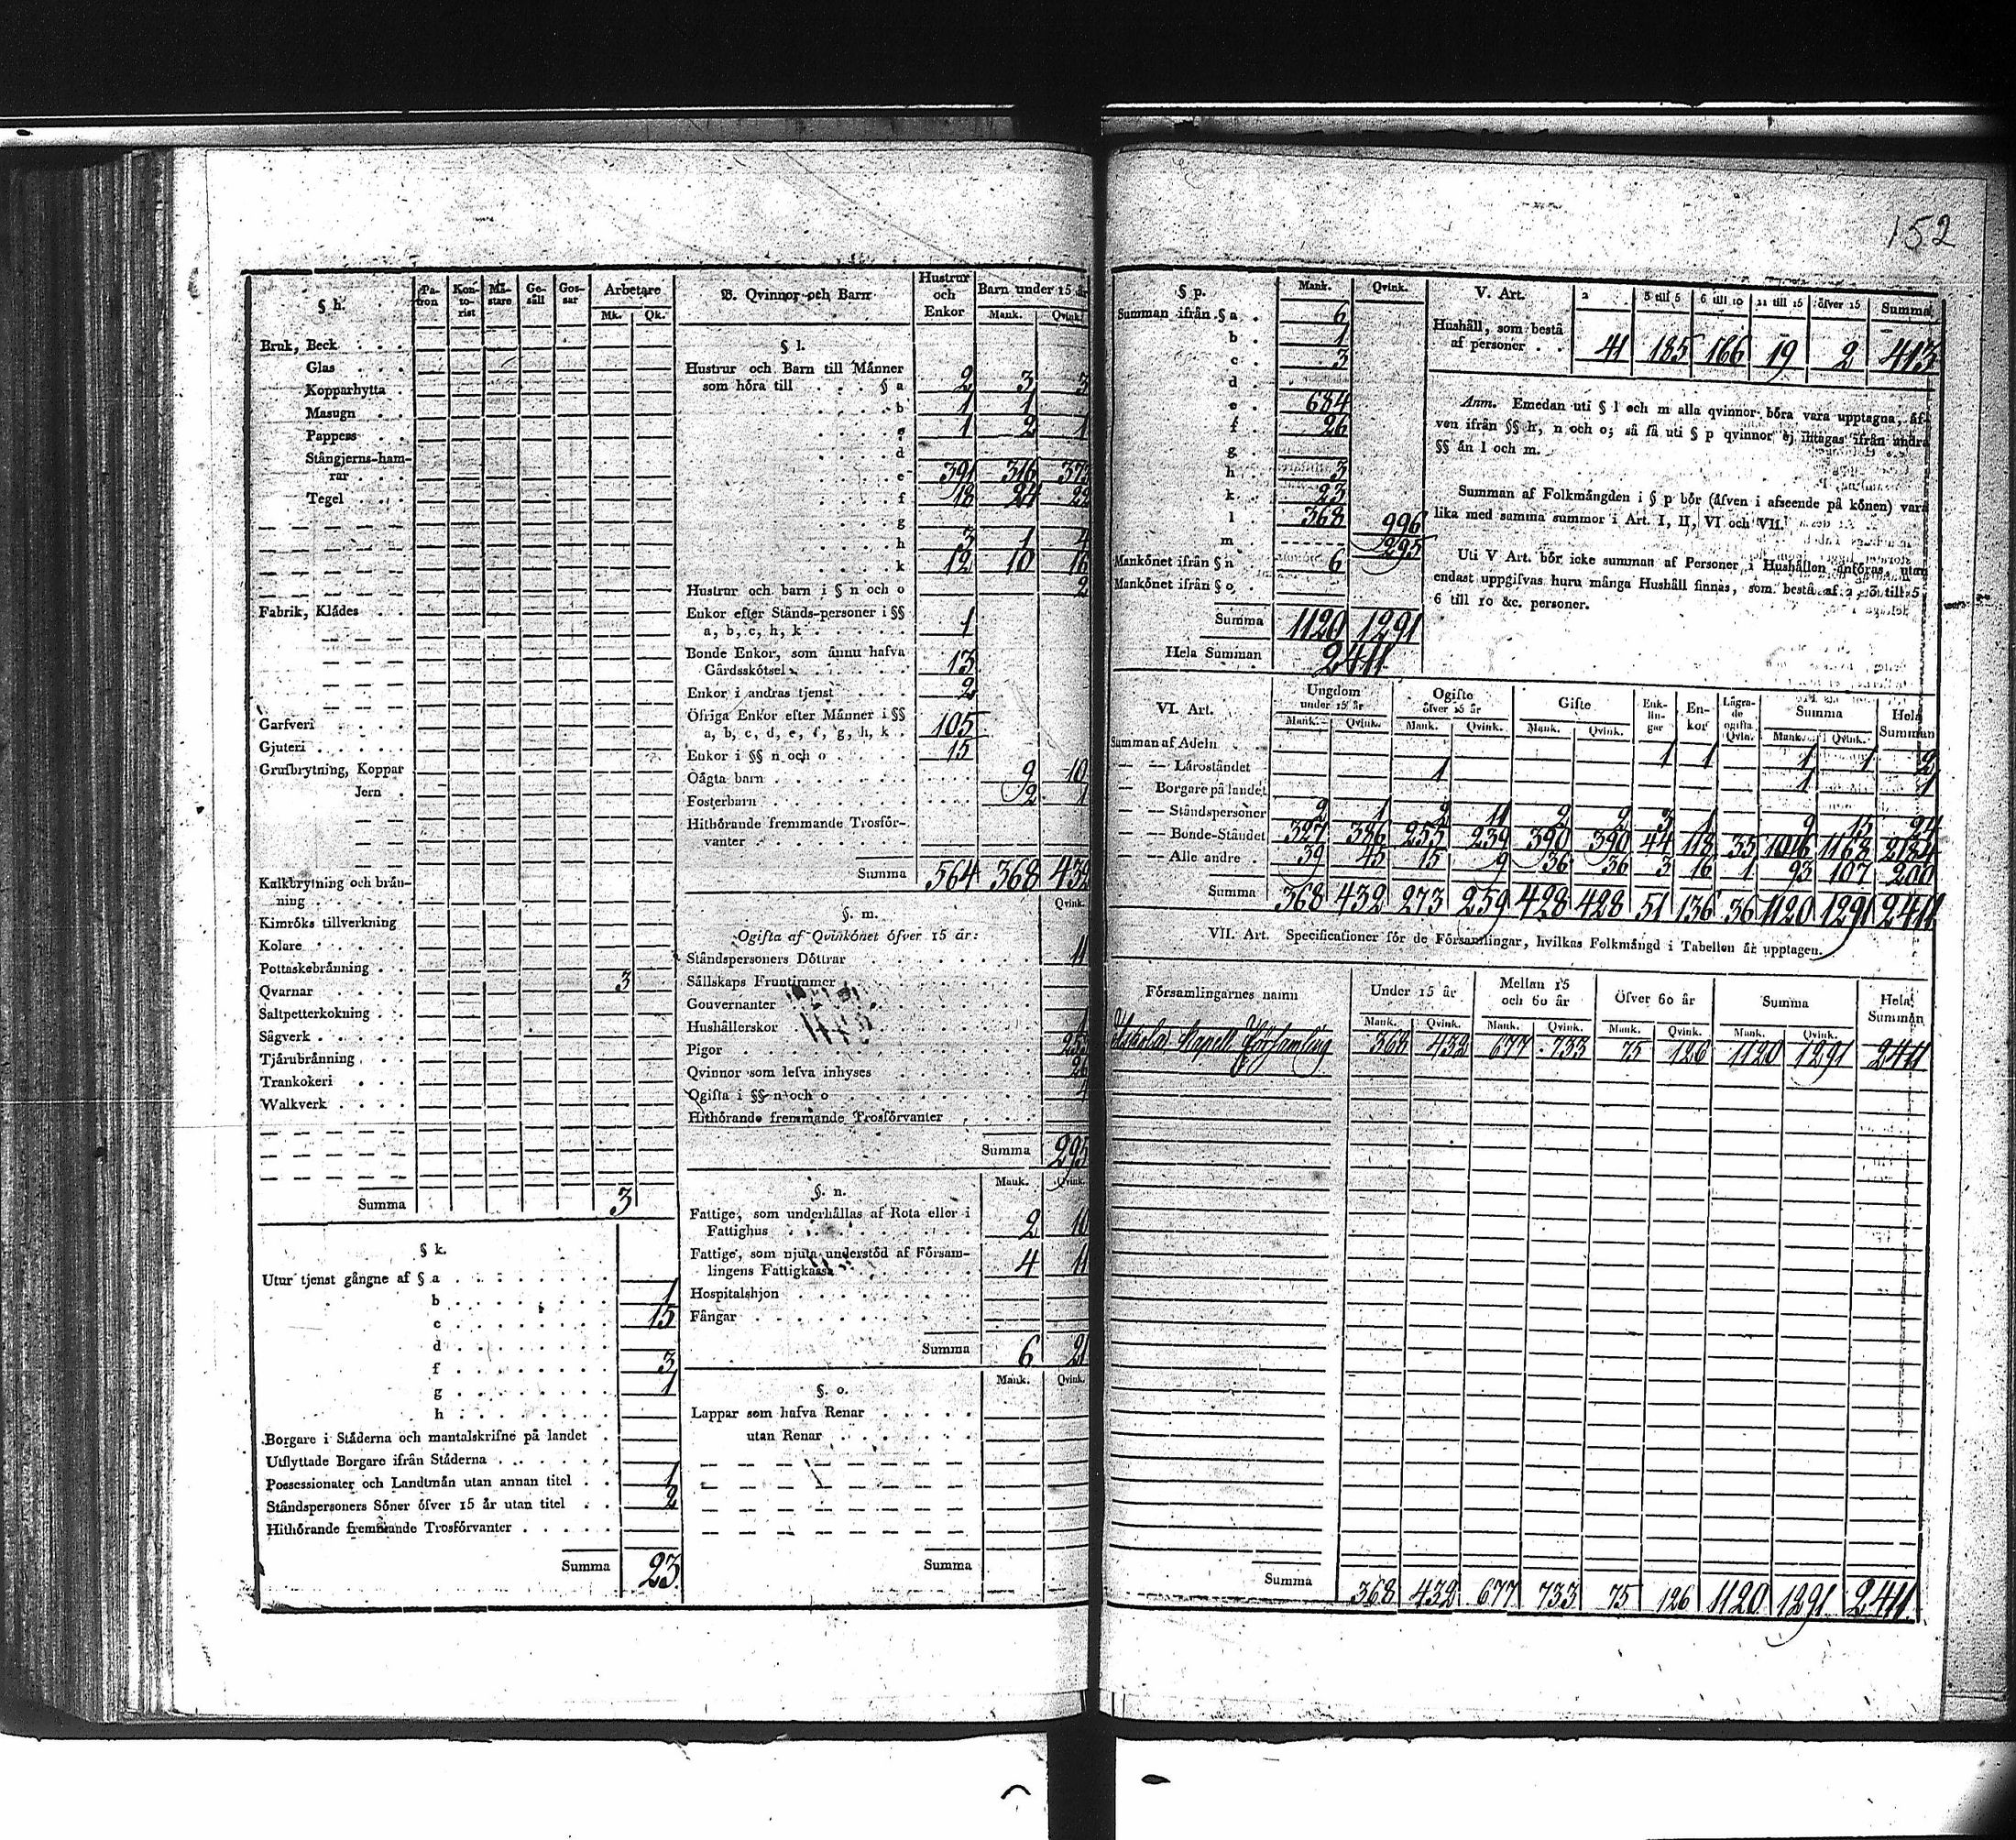 152
§ h.
Pa-tron Kon-to-rist Mä-stare Ge-säll Gos-sar Arbetare
Mk. Qk.
Bruk, Beck . . .
Glas . . .
Kopparhytta .
Masugn . .
Pappers . .
Stångjerns-ham-
rar . . .
Tegel . . .
Fabrik, Klådes . .
Garfveri . . . .
Gjuteri . . . . .
Grufbrytning, Koppar
Jern .
Kalkbrytning och brån-
ning . . . . .
Kimröks tillverkning
Kolare . . . . .
Pottaskebrånning . .
Qvarnar . . . . 3
Saltpetterkokning . .
Sågverk . . . .
Tjårubrånning . . .
Trankokeri . . .
Walkverk . . . .
Summa 3
§ k.
Utur tjenst gångne af § a . . . . . . . . 1
b . . . . . . . . 15
c . . . . . . . .
d . . . . . . . . 3
f . . . . . . . . 1
g . . . . . . . .
h . . . . . . . .
Borgare i Ståderna och mantalskrifne på landet .
Utflyttade Borgare ifrån Ståderna . . . . . .
Possessionater och Landtmån utan annan titel . . 1
Ståndspersoners Söner öfver 15 år utan titel . . 2
Hithörande fremmande Trosförvanter . . . . .
Summa 23
B. Qvinnor och Barn
Hustrur och Enkor Barn under 15 år
Mank. Qvink.
§ l.
Hustrur och Barn till Månner
som höra till . . . . § a 2 3 3
b 1 1
c 1 2 1
d
e 391 316 373
f 18 24 22
g
h 3 1 4
k 12 10 16
Hustrur och barn i § n och o 2
Enkor efter Stånds-personer i §§
a, b, c, h, k . . . . . . 1
Bonde Enkor, som ånnu hafva
Gårdsskötsel . . . . . . 13
Enkor i andras tjenst . . . . 2
Öfriga Enkor efter Månner i §§
a, b, c, d, e, f, g, h, k . 105
Enkor i §§ n och o . . . . 15
Oågta barn . . . . . . . . 9 10
Fosterbarn . . . . . . . . 2 1
Hithörande fremmande Trosför-
vanter . . . . . . . . .
Summa 564 368 432
§. m.
Qvink.
Ogifta af Qvinkönet öfver 15 år:
Ståndspersoners Döttrar . . . . . . . 11
Sållskaps Fruntimmer . . . . . . .
Gouvernanter . . . . . . . .
Hushållerskor . . . . . . . . 1
Pigor . . . . . . . . . .
Qvinnor som lefva inhyses . . . . . . 26
Ogifta i §§ n och o . . . . . . . . 4
Hithörande fremmande Trosförvanter . . . .
Summa 295
§. n.
Mank. Qvink.
Fattige, som underhållas af Rota eller i
Fattighus . . . . . . . . . 2 10
Fattige, som njuta understöd af Försam-
lingens Fattigkassa . . . . . . . 4 11
Hospitalshjon . . . . . . . . .
Fångar . . . . . . . . . .
Summa 6 21
§. o.
Mank. Qvink.
Lappar som hafva Renar . . . . .
utan Renar . . . . . . .
Summa
§ p.
Mank. Qvink.
Summan ifrån § a . 6
b . 1
c . 3
d .
e . 684
f . 26
g .
h . 3
k . 23
l . 368 996
m . 295
Mankönet ifrån § n . 6
Mankönet ifrån § o .
Summa 1120 1291
Hela Summan 2411
V. Art.
2 3 till 5 6 till 10 11 till 15 öfver 15 Summa
Hushåll, som bestå
af personer . . 41 185 166 19 2 413
Anm. Emedan uti § l och m alla qvinnor böra vara upptagna, åf-
ven ifrån §§ h, n och o; så få uti § p qvinnor ej intagas ifrån andra
§§ ån l och m.
Summan af Folkmångden i § p bör (åfven i afseende på könen) vara
lika med samma summor i Art. I, II, VI och VII.
Uti V Art. bör icke summan af Personer i Hushållen anföras, utan
endast uppgifvas huru många Hushåll finnas, som bestå af 2, 3 till 5,
6 till 10 &c. personer.
VI. Art.
Ungdom under 15 år Ogifte öfver 15 år Gifte Enk-lin-gar En-kor Lägra-de ogifta Qvin. Summa Hela Summan
Mank. Qvink. Mank. Qvink. Mank. Qvink. Mank. Qvink.
Summan af Adeln . . 1 1 1 1 2
— — Låroståndet 1 1 1
— Borgare på landet
— — Ståndspersoner 2 1 2 11 2 2 3 1 9 15 24
— — Bonde-Ståndet 327 386 255 239 390 390 44 118 35 1016 1168 2184
— — Alle andre . 39 45 15 9 36 36 3 16 1 93 107 200
Summa 368 432 273 259 428 428 51 136 36 1120 1291 2411
VII. Art. Specificationer för de Församlingar, hvilkas Folkmångd i Tabellen år upptagen.
Församlingarnes namn Under 15 år Mellan 15 och 60 år Öfver 60 år Summa Hela Summan
Mank. Qvink. Mank. Qvink. Mank. Qvink. Mank. Qvink.
Kapell Församling 368 432 677 733 75 126 1120 1291 2411
Summa 368 432 677 733 75 126 1120 1291 2411